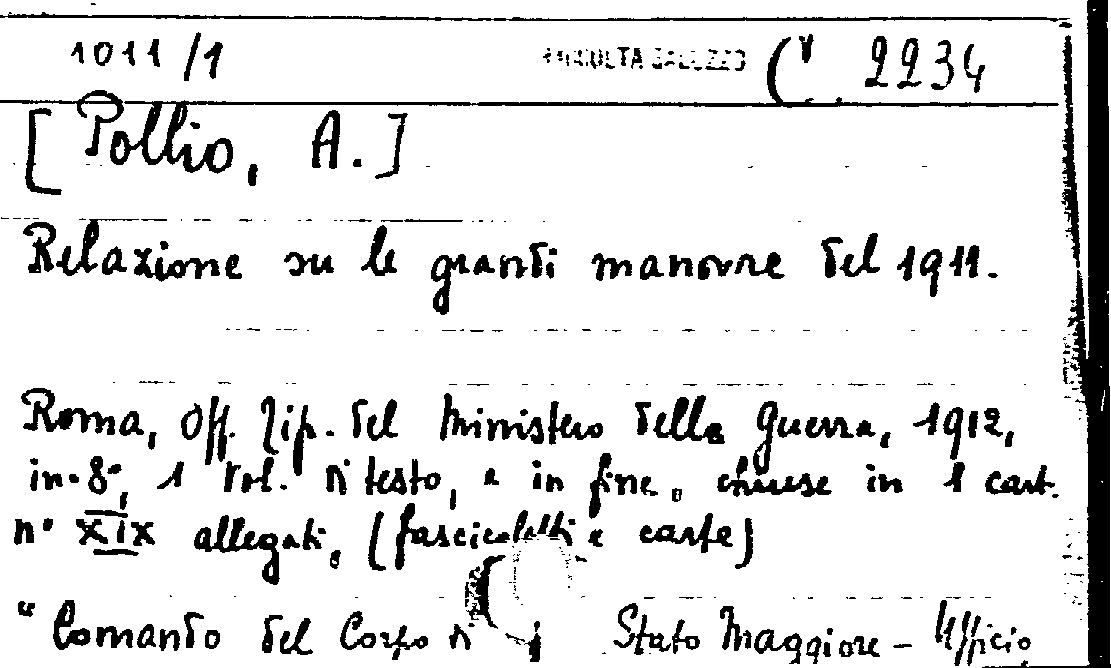 1011/1 RACCOLTA GALUZZO C. 2234
[Pollio, A.]
Relazione su le grandi manovre del 1911.
Roma, Off. Tip. del Ministero della Guerra, 1912,
in-8°, 1 vol. di testo, e in fine, chiuse in 1 cart.
n° XIX allegati, (fascicoletti e carte)
"Comando del Corpo di Stato Maggiore - Ufficio